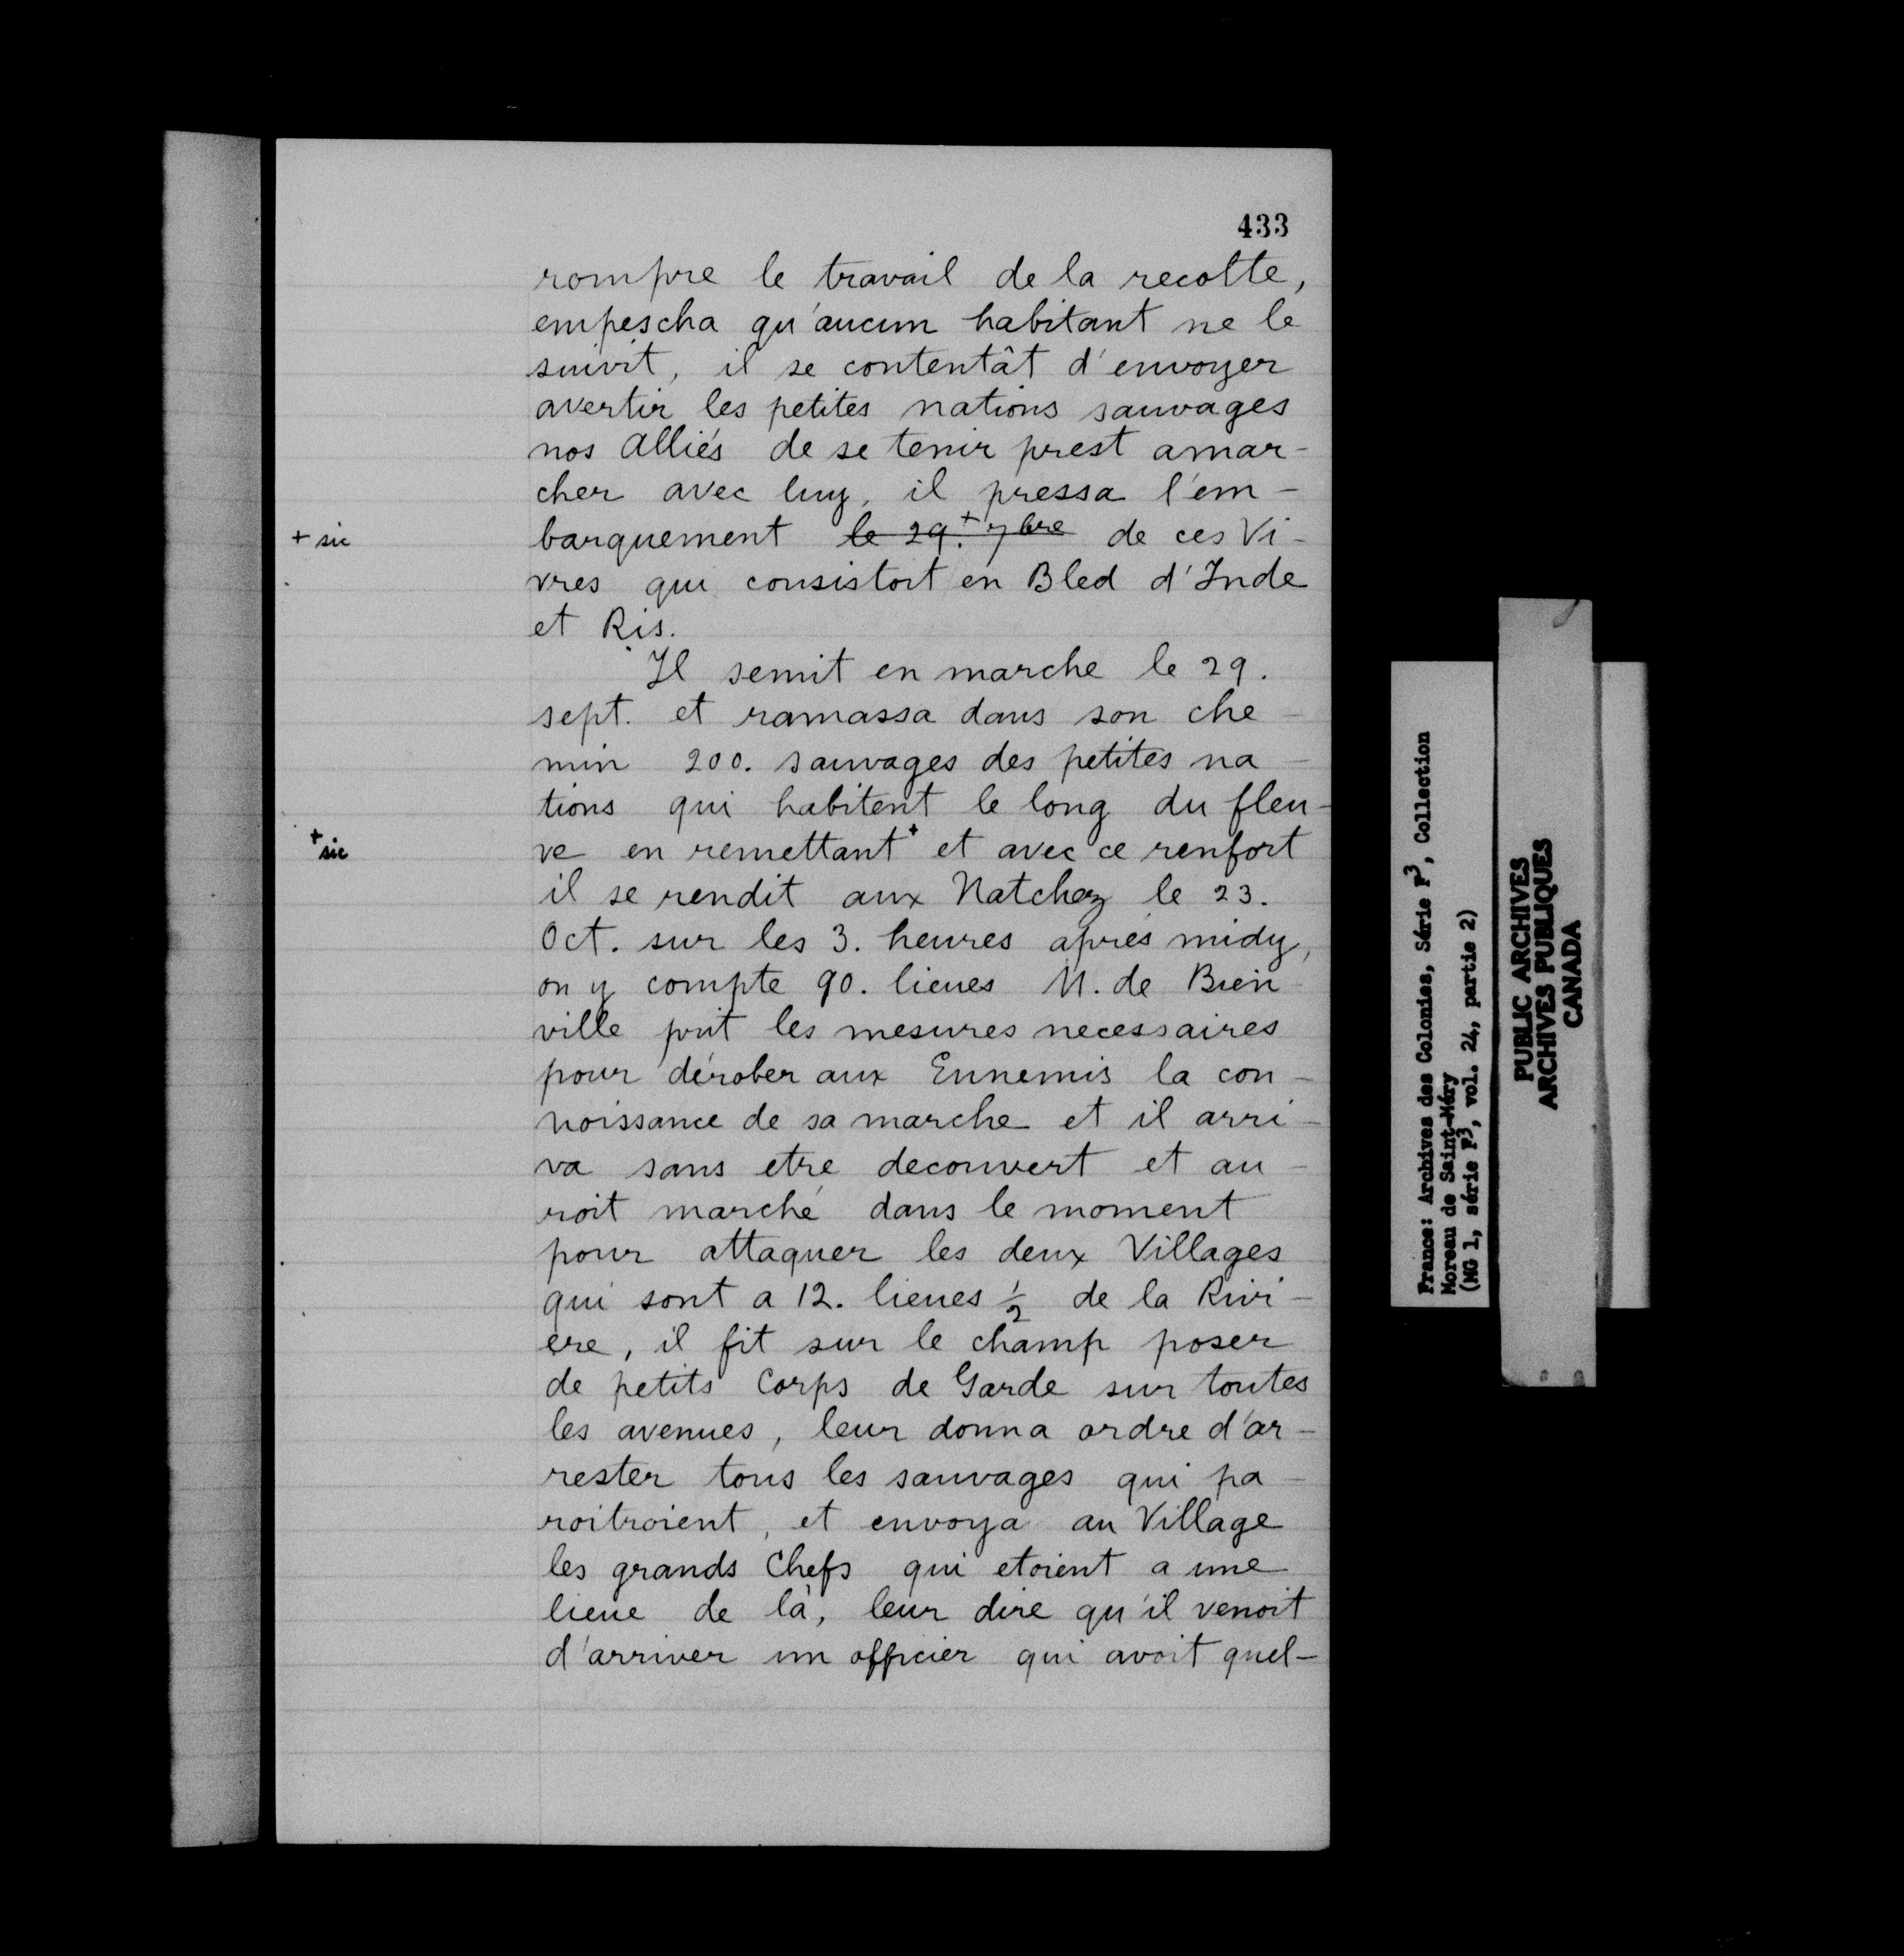 433
rompre le travail de la recolte,
empescha qu'aucun habitant ne le
suivit, il se contentât d'envoyer
avertir les petites nations sauvages
nos alliés de se tenir prest amar-
cher avec luy, il pressa l'em-
+ sic barquement le 29.+ 7bre de ces Vi-
vres qui consistoit en Bled d'Inde
et Ris.
Il semit en marche le 29.
sept. et ramassa dans son che-
min 200. sauvages des petites na-
tions qui habitent le long du fleu-
+ sic ve en remettant+ et avec ce renfort
il se rendit aux Natchez le 23.
Oct. sur les 3. heures après midy,
on y compte 90. lieues M. de Bien
ville prit les mesures necessaires
pour dérober aux Ennemis la con-
noissance de sa marche et il arri-
va sans etre decouvert et au-
roit marché dans le moment
pour attaquer les deux Villages
qui sont a 12. lieues ½ de la Rivi-
ere, il fit sur le champ poser
de petits Corps de Garde sur toutes
les avenues, leur donna ordre d'ar-
rester tous les sauvages qui pa-
roitroient, et envoya au Village
les grands Chefs qui etoient a une
lieue de là, leur dire qu'il venoit
d'arriver un officier qui avoit quel-
France: Archives des Colonies, Série F3, Collection
Moreau de Saint-Méry
(MG 1, série F3, vol. 24, partie 2)
PUBLIC ARCHIVES
ARCHIVES PUBLIQUES
CANADA